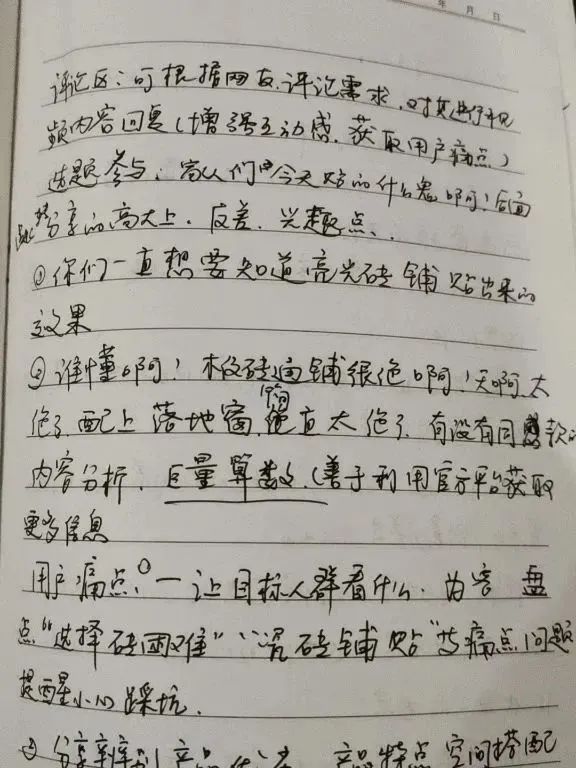 年 月 日
评论区：可根据网友评论需求，对其进行视
频内容回复（增强互动感，获取用户痛点）
选题参与：家人们"今天贴的什么啊！后面
分享的高大上．反差．兴趣点．
①你们一直想要知道亮光砖铺贴出来的
效果
②谁懂啊！木纹砖通铺很绝啊！天啊太
绝了．配上落地窗，简直太绝了．有没有同款的
内容分析．巨量算数．（善于利用官方平台获取
更多信息
用户痛点：①一让目标人群看什么．为客盘
点"选择砖困难"、"瓷砖铺贴"等痛点问题
提醒小心踩坑．
②分享 产品 产品特点 空间搭配